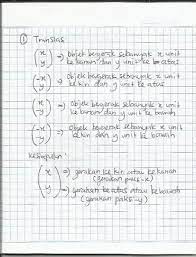 ① Translasi
(x y) => Objek bergerak sebanyak x unit
ke kanan dan y unit ke atas
(-x y) => Objek bergerak sebanyak x unit
ke kiri dan y unit ke atas
(x -y) => Objek bergerak sebanyak x unit
ke kanan dan y unit ke bawah
(-x -y) => Objek bergerak sebanyak x unit
ke kiri dan y unit ke bawah
Kesimpulan :
(x y) => gerakan ke kiri atau ke kanan
(gerakan paksi-x)
=> gerakan ke atas atau ke bawah
(gerakan paksi-y)